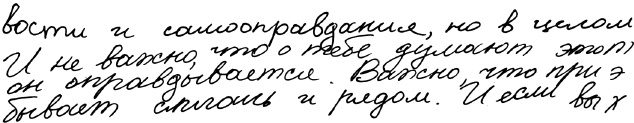 вости и самооправдания, но в целом
И не важно, что о тебе думают этот
он оправдывается. Важно, что при э
бывает сплошь и рядом. И если вы х